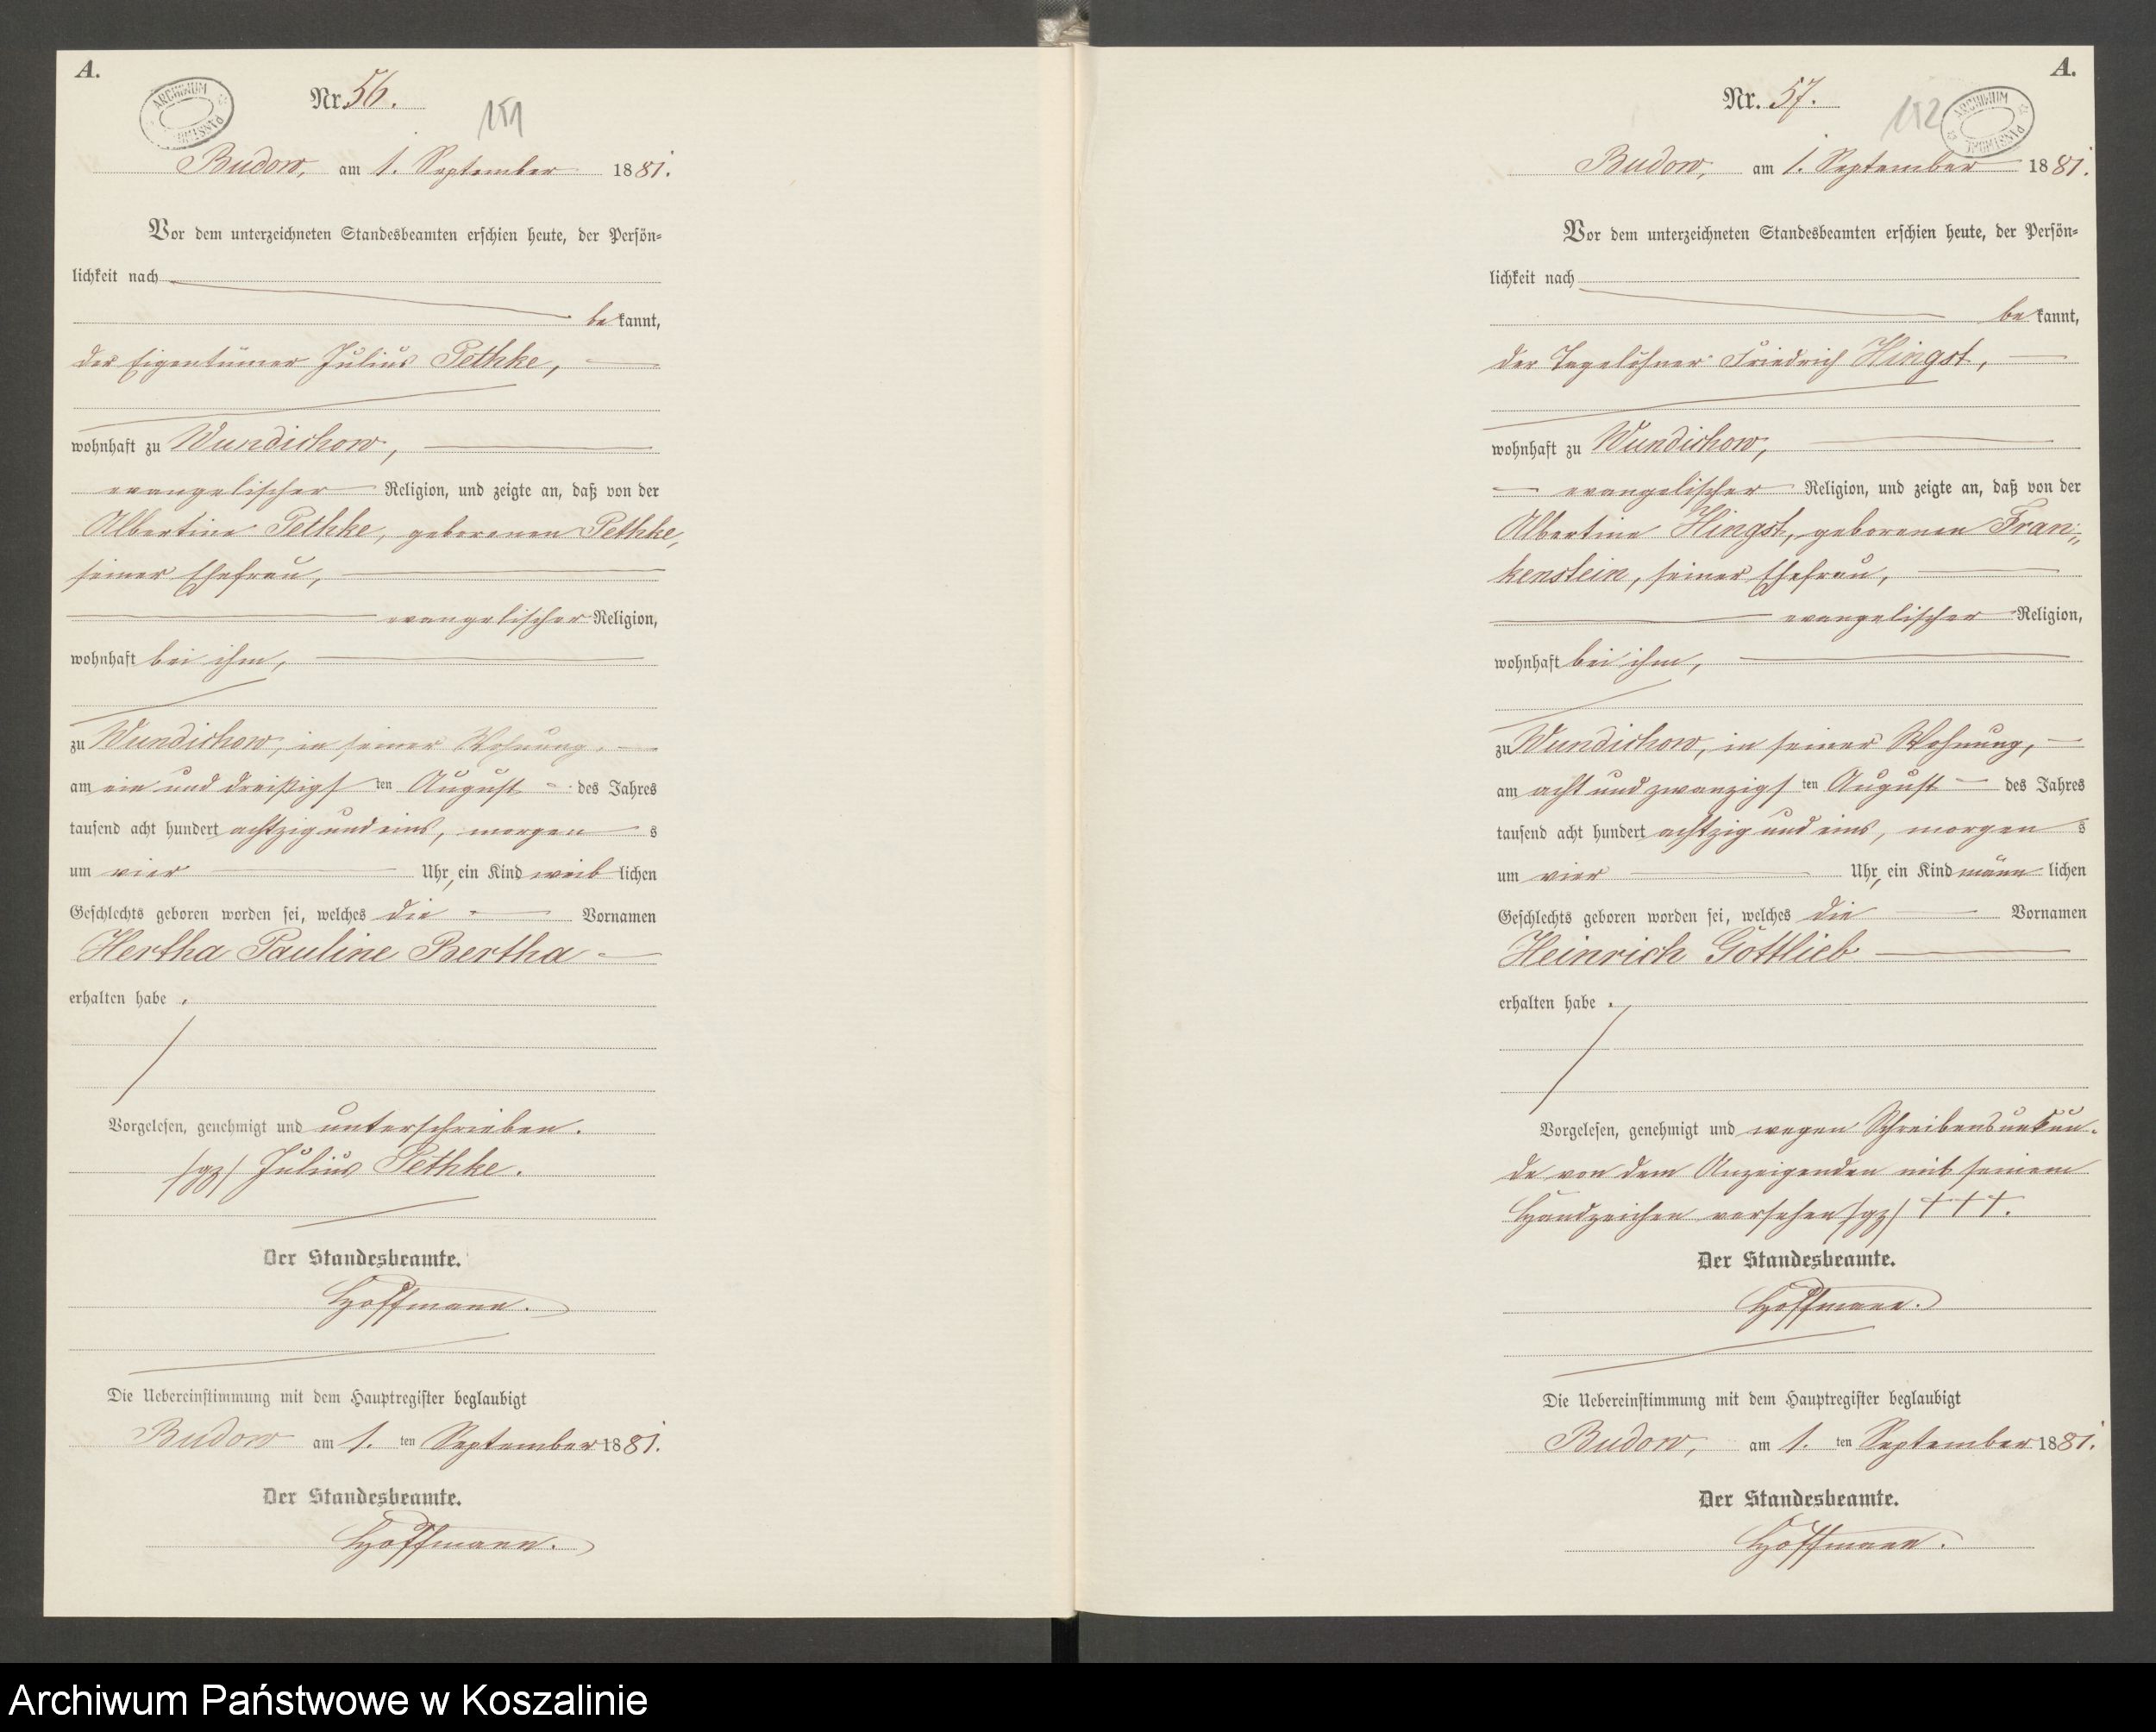 A.
ARCHIWUM PAŃSTWOWE
Nr. 56.
151
Budow, am 1. September 1881.
Vor dem unterzeichneten Standesbeamten erschien heute, der Persön-
lichkeit nach
bekannt,
der Eigentümer Julius Pethke,
wohnhaft zu Wundichow,
evangelischer Religion, und zeigte an, daß von der
Albertine Pethke, geborenen Pethke,
seiner Ehefrau,
evangelischer Religion,
wohnhaft bei ihm,
zu Wundichow, in seiner Wohnung,
am ein und dreißigsten August des Jahres
tausend acht hundert achtzig und eins, morgens
um vier Uhr, ein Kind weiblichen
Geschlechts geboren worden sei, welches die Vornamen
Hertha Pauline Bertha
erhalten habe.
Vorgelesen, genehmigt und unterschrieben.
/gz/ Julius Pethke.
Der Standesbeamte.
Hoffmann.
Die Uebereinstimmung mit dem Hauptregister beglaubigt
Budow am 1. ten September 1881.
Der Standesbeamte.
Hoffmann.
A.
Nr. 57.
152
ARCHIWUM PAŃSTWOWE
Budow, am 1. September 1881.
Vor dem unterzeichneten Standesbeamten erschien heute, der Persön-
lichkeit nach
bekannt,
der Tagelöhner Friedrich Hingst,
wohnhaft zu Wundichow,
evangelischer Religion, und zeigte an, daß von der
Albertine Hingst, geborenen Fran-
kenstein, seiner Ehefrau,
evangelischer Religion,
wohnhaft bei ihm,
zu Wundichow, in seiner Wohnung,
am acht und zwanzigsten August des Jahres
tausend acht hundert achtzig und eins, morgens
um vier Uhr, ein Kind männlichen
Geschlechts geboren worden sei, welches die Vornamen
Heinrich Gottlieb
erhalten habe.
Vorgelesen, genehmigt und wegen Schreibensunkun-
de von dem Anzeigenden mit seinem
Handzeichen versehen /gz/ +++.
Der Standesbeamte.
Hoffmann.
Die Uebereinstimmung mit dem Hauptregister beglaubigt
Budow, am 1. ten September 1881.
Der Standesbeamte.
Hoffmann.
Archiwum Państwowe w Koszalinie